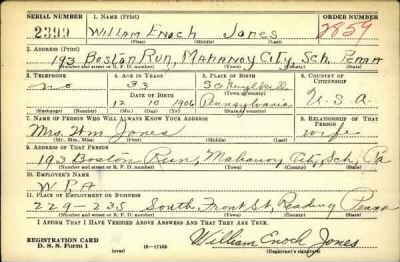 SERIAL NUMBER 1. NAME (Print) ORDER NUMBER
2399 William Enoch Jones 2859
(First) (Middle) (Last)
2. ADDRESS (Print)
193 Boston Run, Mahanoy City, Sch. Penna
(Number and street or R. F. D. number) (Town) (County) (State)
3. TELEPHONE 4. AGE IN YEARS 5. PLACE OF BIRTH 6. COUNTRY OF CITIZENSHIP
no 33
DATE OF BIRTH (Town or county)
12 10 1906 Pennsylvania U.S.A.
(Exchange) (Number) (Mo.) (Day) (Yr.) (State or country)
7. NAME OF PERSON WHO WILL ALWAYS KNOW YOUR ADDRESS 8. RELATIONSHIP OF THAT PERSON
Mrs. Wm Jones wife
(Mr., Mrs., Miss) (First) (Middle) (Last)
9. ADDRESS OF THAT PERSON
193 Boston Run, Mahanoy City, Sch, Pa
(Number and street or R. F. D. number) (Town) (County) (State)
10. EMPLOYER'S NAME
W.P.A
11. PLACE OF EMPLOYMENT OR BUSINESS
229-235 South Front St, Reading Penna
(Number and street or R. F. D. number) (Town) (County) (State)
I AFFIRM THAT I HAVE VERIFIED ABOVE ANSWERS AND THAT THEY ARE TRUE.
REGISTRATION CARD
D. S. S. Form 1 (over) 16—17105 William Enoch Jones
(Registrant's signature)